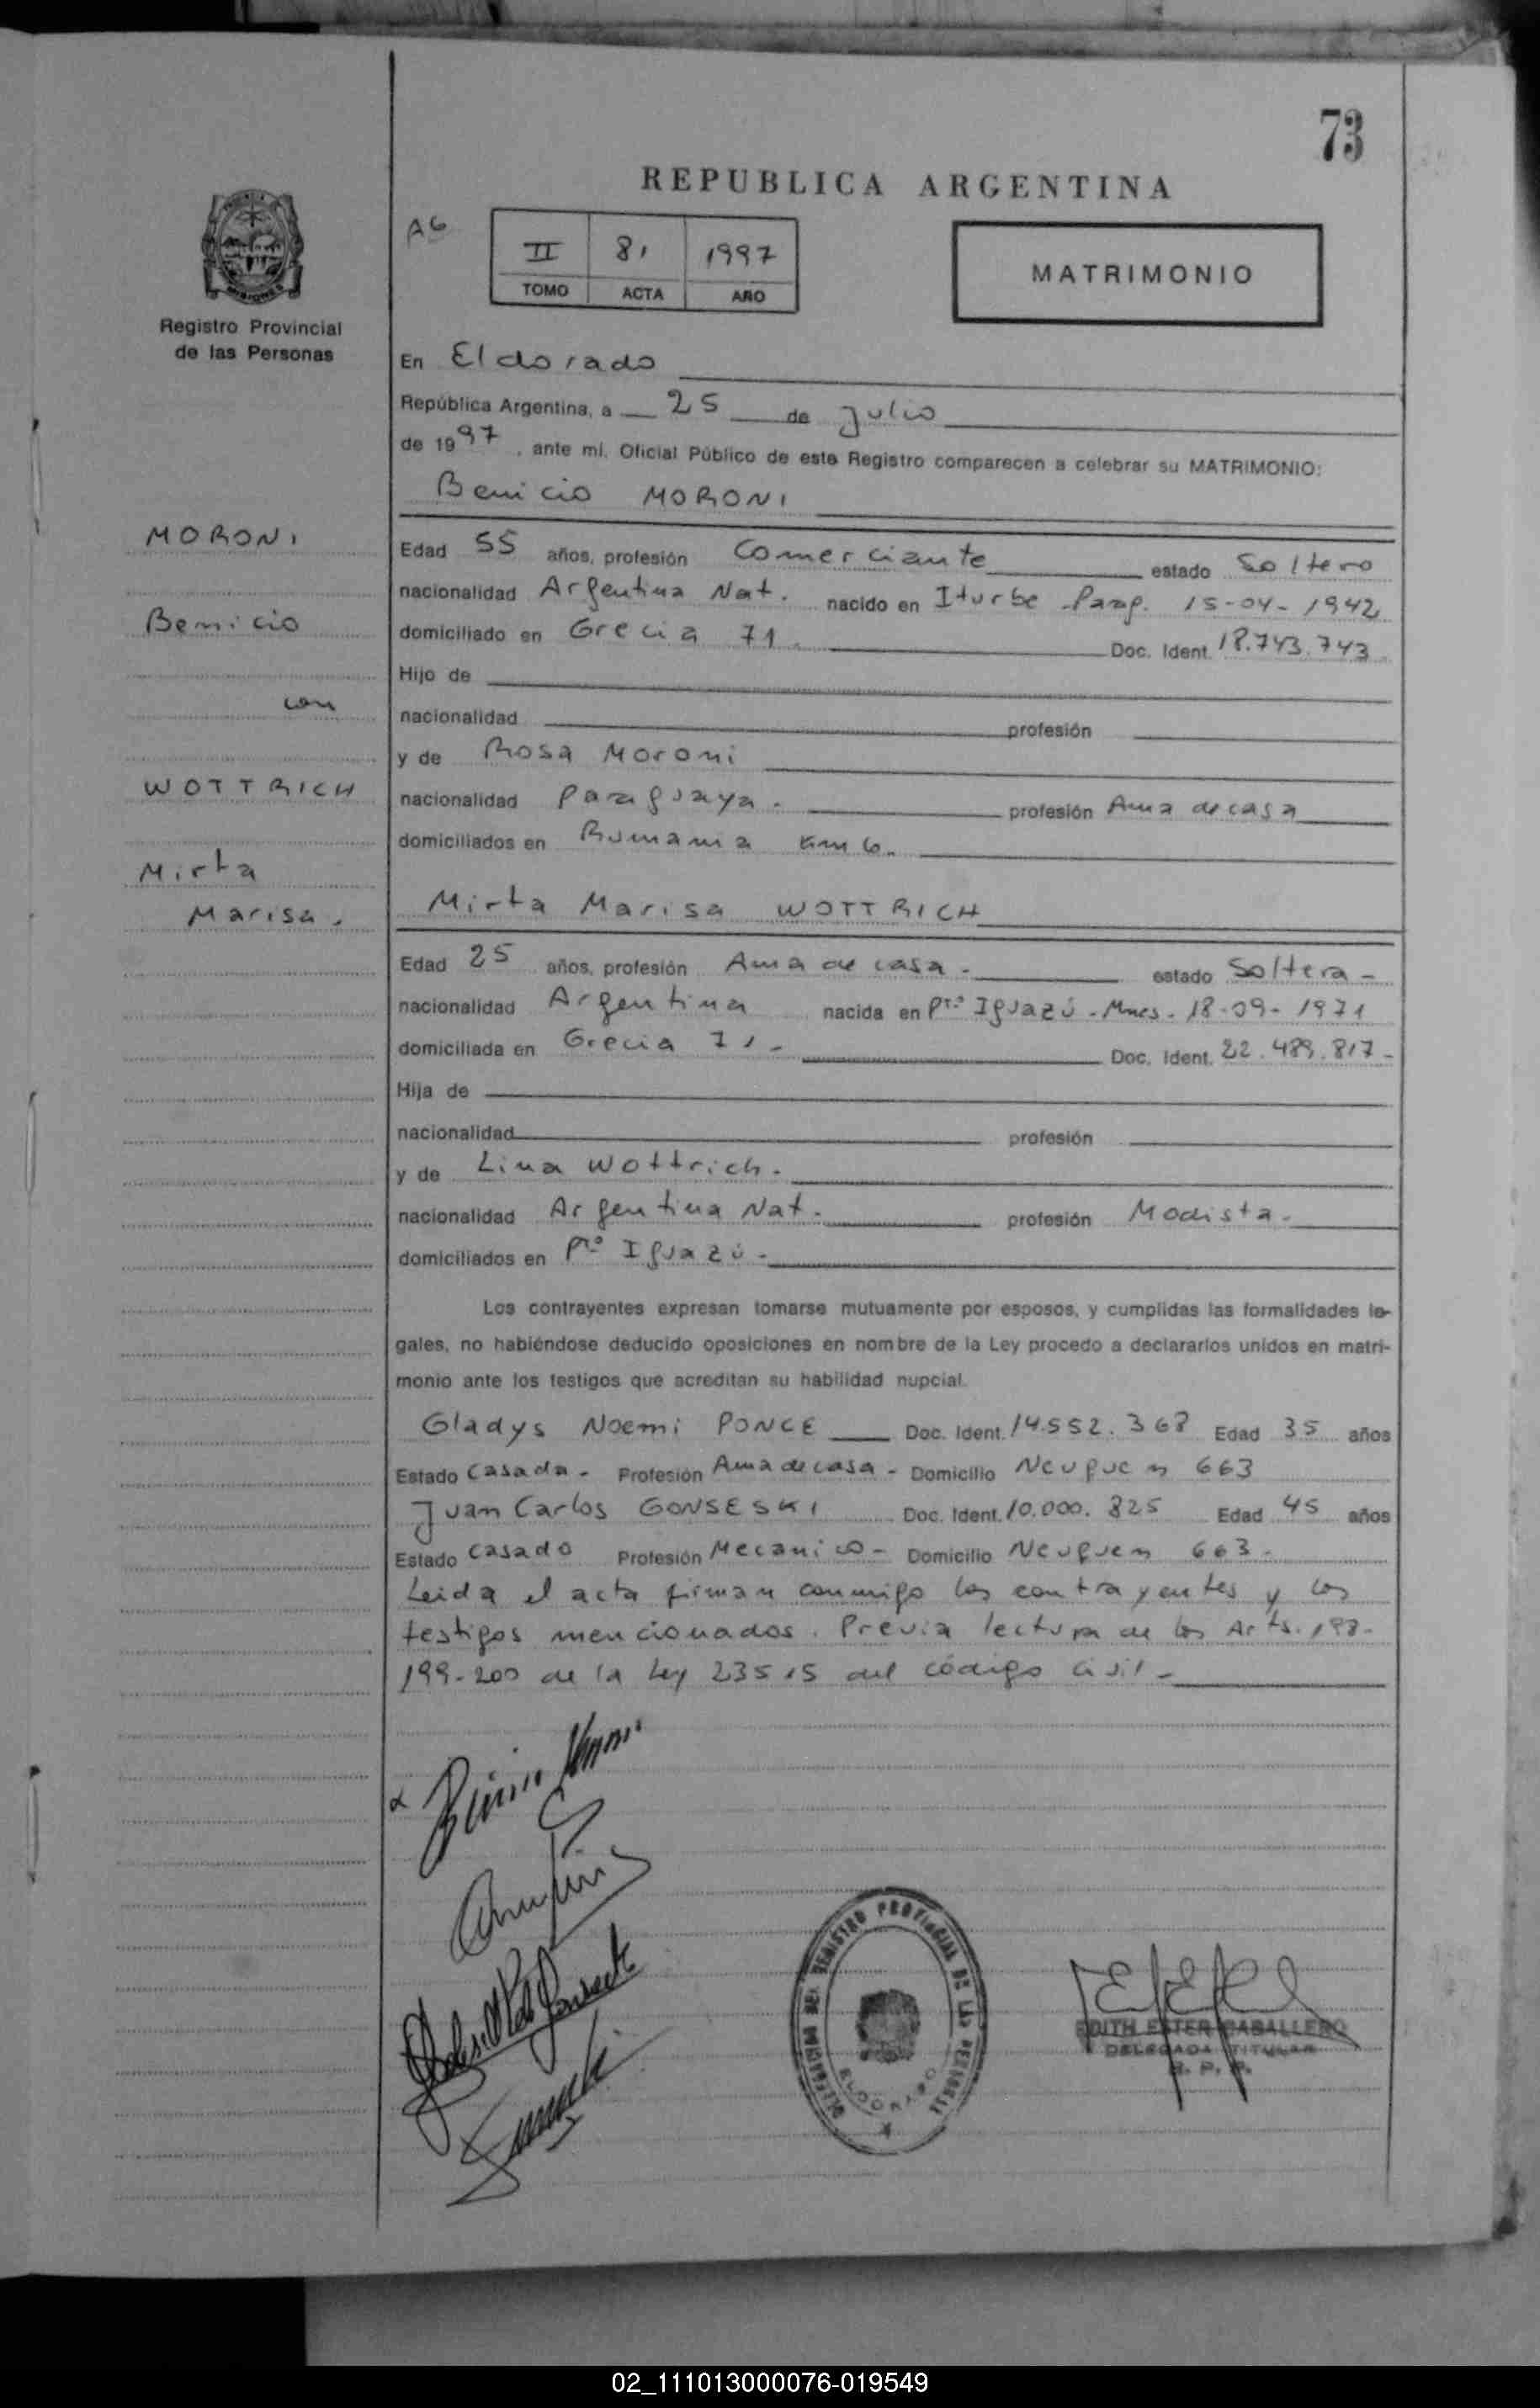 73
REPUBLICA ARGENTINA
A6
II 81 1997
TOMO ACTA AÑO
MATRIMONIO
Registro Provincial
de las Personas
En Eldorado
República Argentina, a 25 de Julio
de 1997, ante mí, Oficial Público de este Registro comparecen a celebrar su MATRIMONIO:
Benicio MORONI
MORONI
Benicio
con
WOTTRICH
Mirta
Marisa.
Edad 55 años, profesión Comerciante estado Soltero
nacionalidad Argentina Nat. nacido en Iturbe - Parag. 15-04-1942
domiciliado en Grecia 71. Doc. Ident. 18.743.743
Hijo de
nacionalidad profesión
y de Rosa Moroni
nacionalidad Paraguaya. profesión Ama de casa
domiciliados en Rumania km 6.
Mirta Marisa WOTTRICH
Edad 25 años, profesión Ama de casa. estado Soltera -
nacionalidad Argentina nacida en Pto. Iguazú - Mnes - 18-09-1971
domiciliada en Grecia 71 - Doc. Ident. 22.489.817-
Hija de
nacionalidad profesión
y de Lina Wottrich.
nacionalidad Argentina Nat. profesión Modista.
domiciliados en Pto Iguazú -
Los contrayentes expresan tomarse mutuamente por esposos, y cumplidas las formalidades le-
gales, no habiéndose deducido oposiciones en nombre de la Ley procedo a declararlos unidos en matri-
monio ante los testigos que acreditan su habilidad nupcial.
Gladys Noemi PONCE Doc. Ident. 14.552.368 Edad 35 años
Estado Casada - Profesión Ama de casa - Domicilio Neuquen 663
Juan Carlos GONSESKI Doc. Ident. 10.000.825 Edad 45 años
Estado Casado Profesión Mecanico - Domicilio Neuquen 663 -
Leida el acta firman conmigo los contrayentes y los
testigos mencionados. Previa lectura de los Arts. 198-
199-200 de la Ley 23515 del código civil -
DELEGACION DEL REGISTRO PROVINCIAL DE LAS PERSONAS
ELDORADO
EDITH ESTER CABALLERO
DELEGADA TITULAR
R. P. P.
02_111013000076-019549